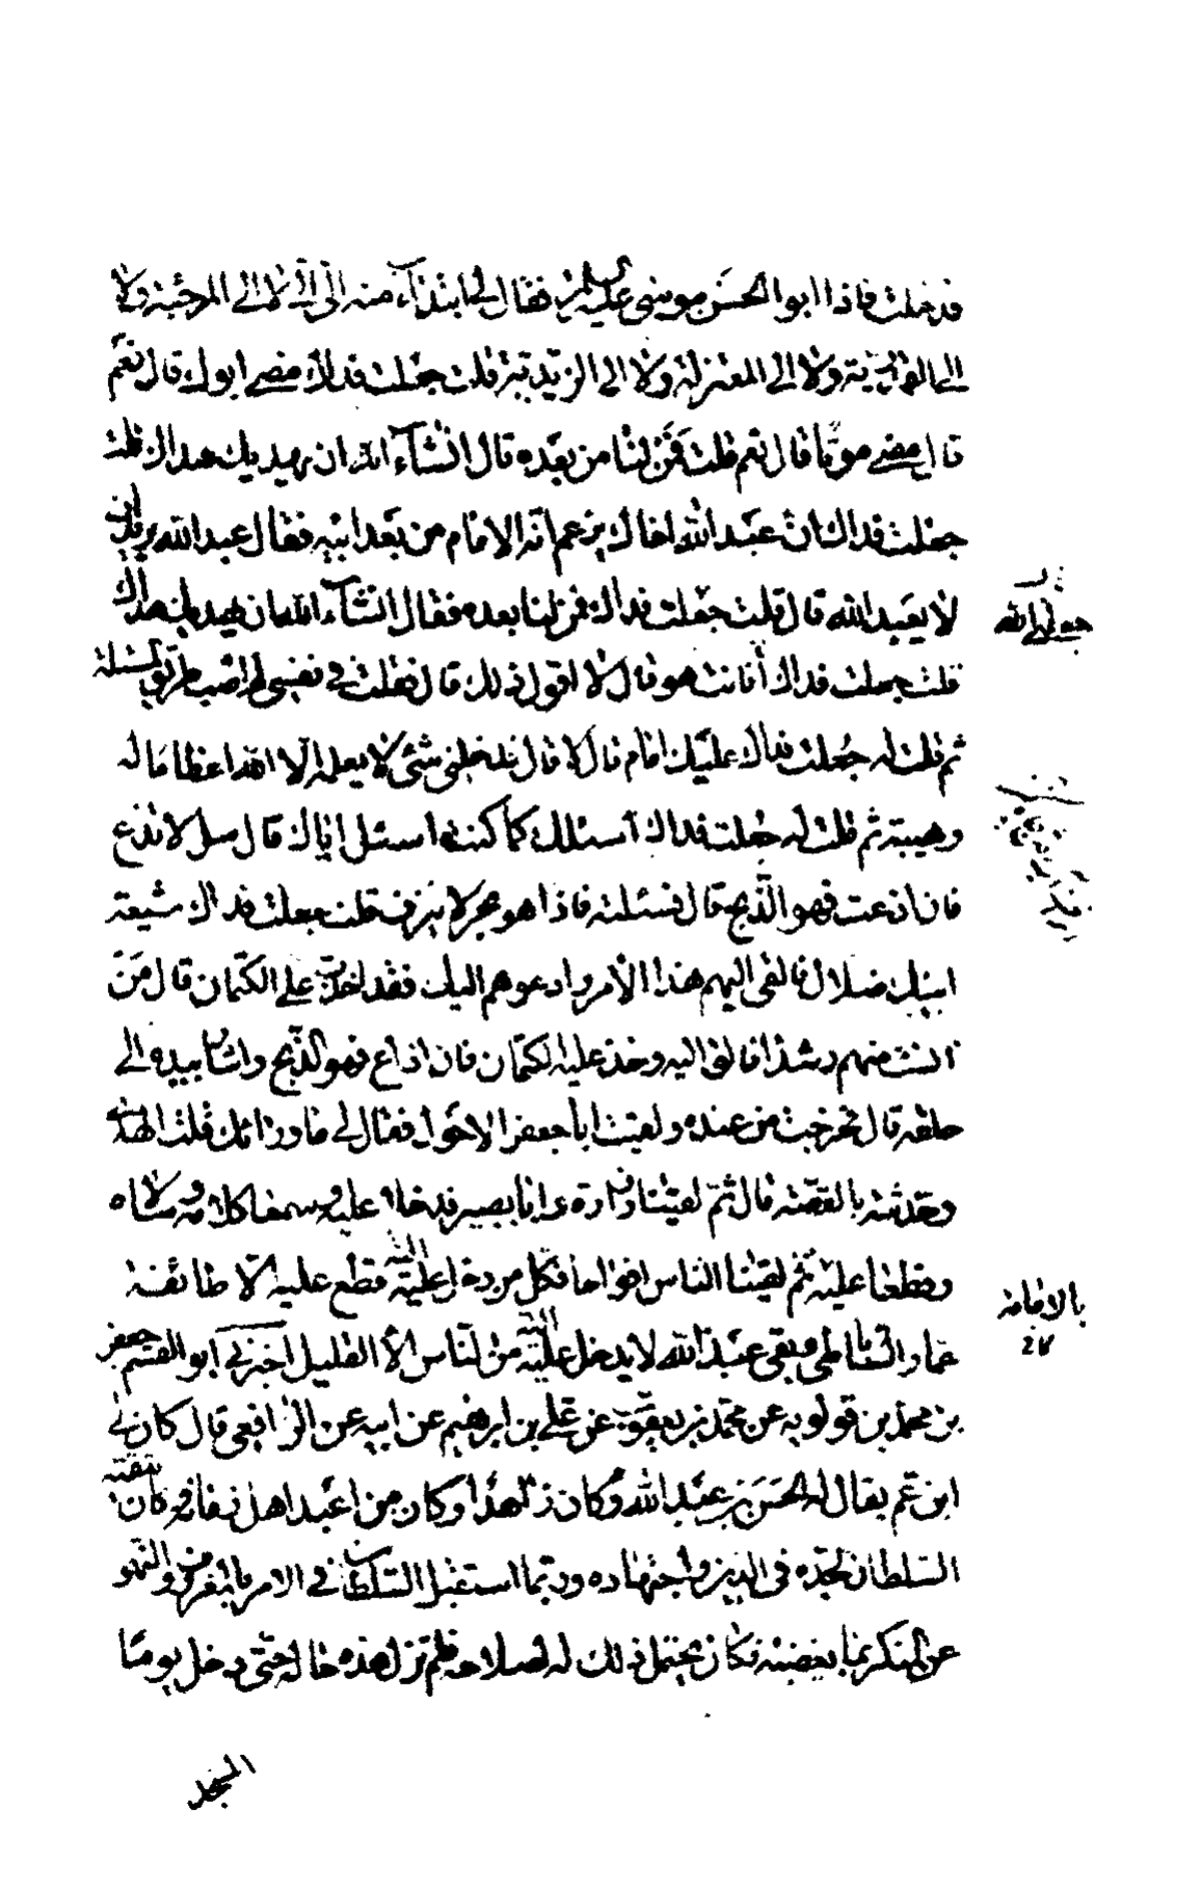 فدخلت فاذا ابو الحسن موسى عليه السلم فقال لي ابتداء منه الىّ الىّ لا الى المرجئة ولا
الى القدرية ولا الى المعتزلة ولا الى الزيدية قلت جعلت فداك مضى ابوك قال نعم
قال مضى موتا قال نعم قلت فمن لنا من بعده قال انشآء الله ان يهديك هداك قلت
جعلت فداك ان عبد الله اخاك يزعم انه الامام من بعد ابيه فقال عبد الله يريد ان
لا يعبد الله قال قلت جعلت فداك فمن لنا بعده فقال انشآء الله ان يهديك هداك
قلت جعلت فداك أفانت هو قال لا اقول ذلك قال فقلت في نفسي لم اصب طريق المسئلة
ثم قلت له جعلت فداك عليك امام قال لا قال فدخلني شئ لا يعلمه الا الله اعظاما له
وهيبة ثم قلت له جعلت فداك اسئلك كما كنت اسئل اباك قال سل لا تذع
فان اذعت فهو الذبح قال فسئلته فاذا هو بحر لا ينزف قلت جعلت فداك شيعة
ابيك ضلال فالقى اليهم هذا الأمر وادعوهم اليك فقد اخذت علي الكتمان قال من
انست منهم رشدا فالق اليه وخذ عليه الكتمان فان اذاع فهو الذبح واشار بيده الى
حلقه قال فخرجت من عنده ولقيت ابا جعفر الاحول فقال لي ما وراءك قلت الهدى
وحدثته بالقصة قال ثم لقينا زرارة وابا بصير فدخلا عليه وسمعا كلامه وسألاه
وقطعا عليه ثم لقينا الناس افواجا فكل من دخل عليه قطع عليه الا طائفة
عمار الساباطي وبقى عبد الله لا يدخل عليه من الناس الا القليل اخبرني ابو القسم جعفر
بن محمد بن قولويه عن محمد بن يعقوب عن علي بن ابرهيم عن ابيه عن الرافعي قال كان لي
ابن عم يقال له الحسن بن عبد الله وكان زاهدا وكان من اعبد اهل زمانه كان يتقيه
السلطان لجده في الدين واجتهاده وربما استقبل السلطان في الامر بالمعروف والنهى
عن المنكر بما يغضبه فكان يحتمل ذلك له لصلاحه فلم تزل هذه حاله حتى دخل يوما
المسجد
بالامامة